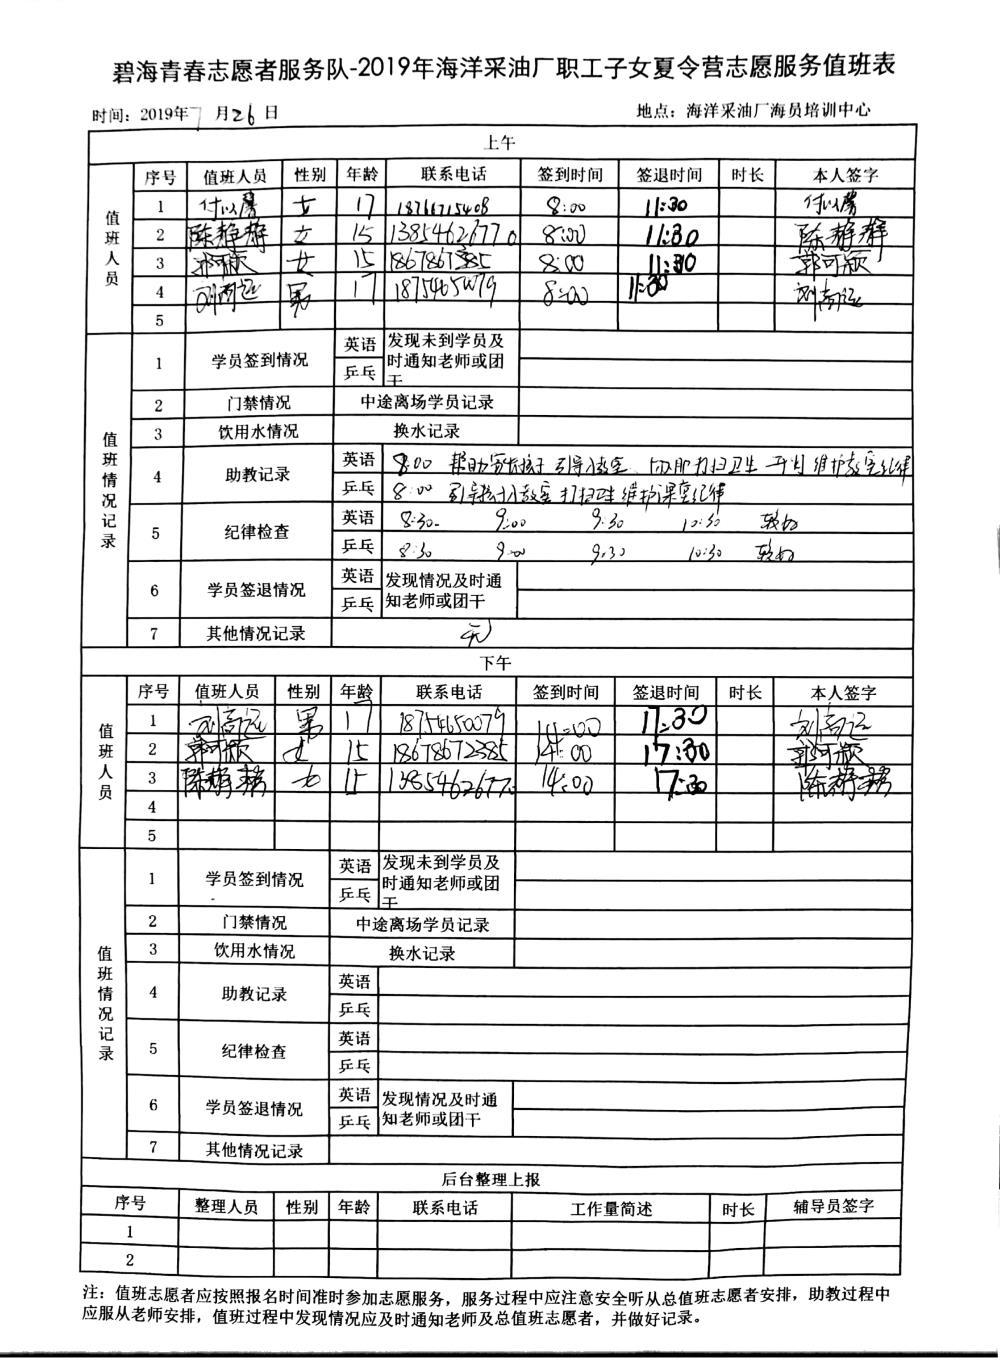 碧海青春志愿者服务队-2019年海洋采油厂职工子女夏令营志愿服务值班表
时间：2019年7月26日 地点：海洋采油厂海员培训中心
上午
值班人员
序号 值班人员 性别 年龄 联系电话 签到时间 签退时间 时长 本人签字
1 付以馨 女 17 18766715408 8:00 11:30 付以馨
2 陈静静 女 15 13854626770 8:00 11:30 陈静静
3 郭可颖 女 15 18678672385 8:00 11:30 郭可颖
4 刘尚远 男 17 18754650079 8:00 11:30 刘尚远
5
值班情况记录
1 学员签到情况 英语 乒乓 发现未到学员及时通知老师或团干
2 门禁情况 中途离场学员记录
3 饮用水情况 换水记录
4 助教记录 英语 8:00 帮助家长孩子 引导入教室 打扫卫生 维护教室纪律
乒乓 8:00 引导孩子入教室 打扫卫生 维护课堂纪律
5 纪律检查 英语 8:30 9:00 9:30 10:30 较好
乒乓 8:30 9:00 9:30 10:30 较好
6 学员签退情况 英语 乒乓 发现情况及时通知老师或团干
7 其他情况记录 无
下午
值班人员
序号 值班人员 性别 年龄 联系电话 签到时间 签退时间 时长 本人签字
1 刘尚远 男 17 18754650079 14:00 17:30 刘尚远
2 郭可颖 女 15 18678672385 14:00 17:30 郭可颖
3 陈静静 女 15 13854626770 14:00 17:30 陈静静
4
5
值班情况记录
1 学员签到情况 英语 乒乓 发现未到学员及时通知老师或团干
2 门禁情况 中途离场学员记录
3 饮用水情况 换水记录
4 助教记录 英语
乒乓
5 纪律检查 英语
乒乓
6 学员签退情况 英语 乒乓 发现情况及时通知老师或团干
7 其他情况记录
后台整理上报
序号 整理人员 性别 年龄 联系电话 工作量简述 时长 辅导员签字
1
2
注：值班志愿者应按照报名时间准时参加志愿服务，服务过程中应注意安全听从总值班志愿者安排，助教过程中
应服从老师安排，值班过程中发现情况应及时通知老师及总值班志愿者，并做好记录。